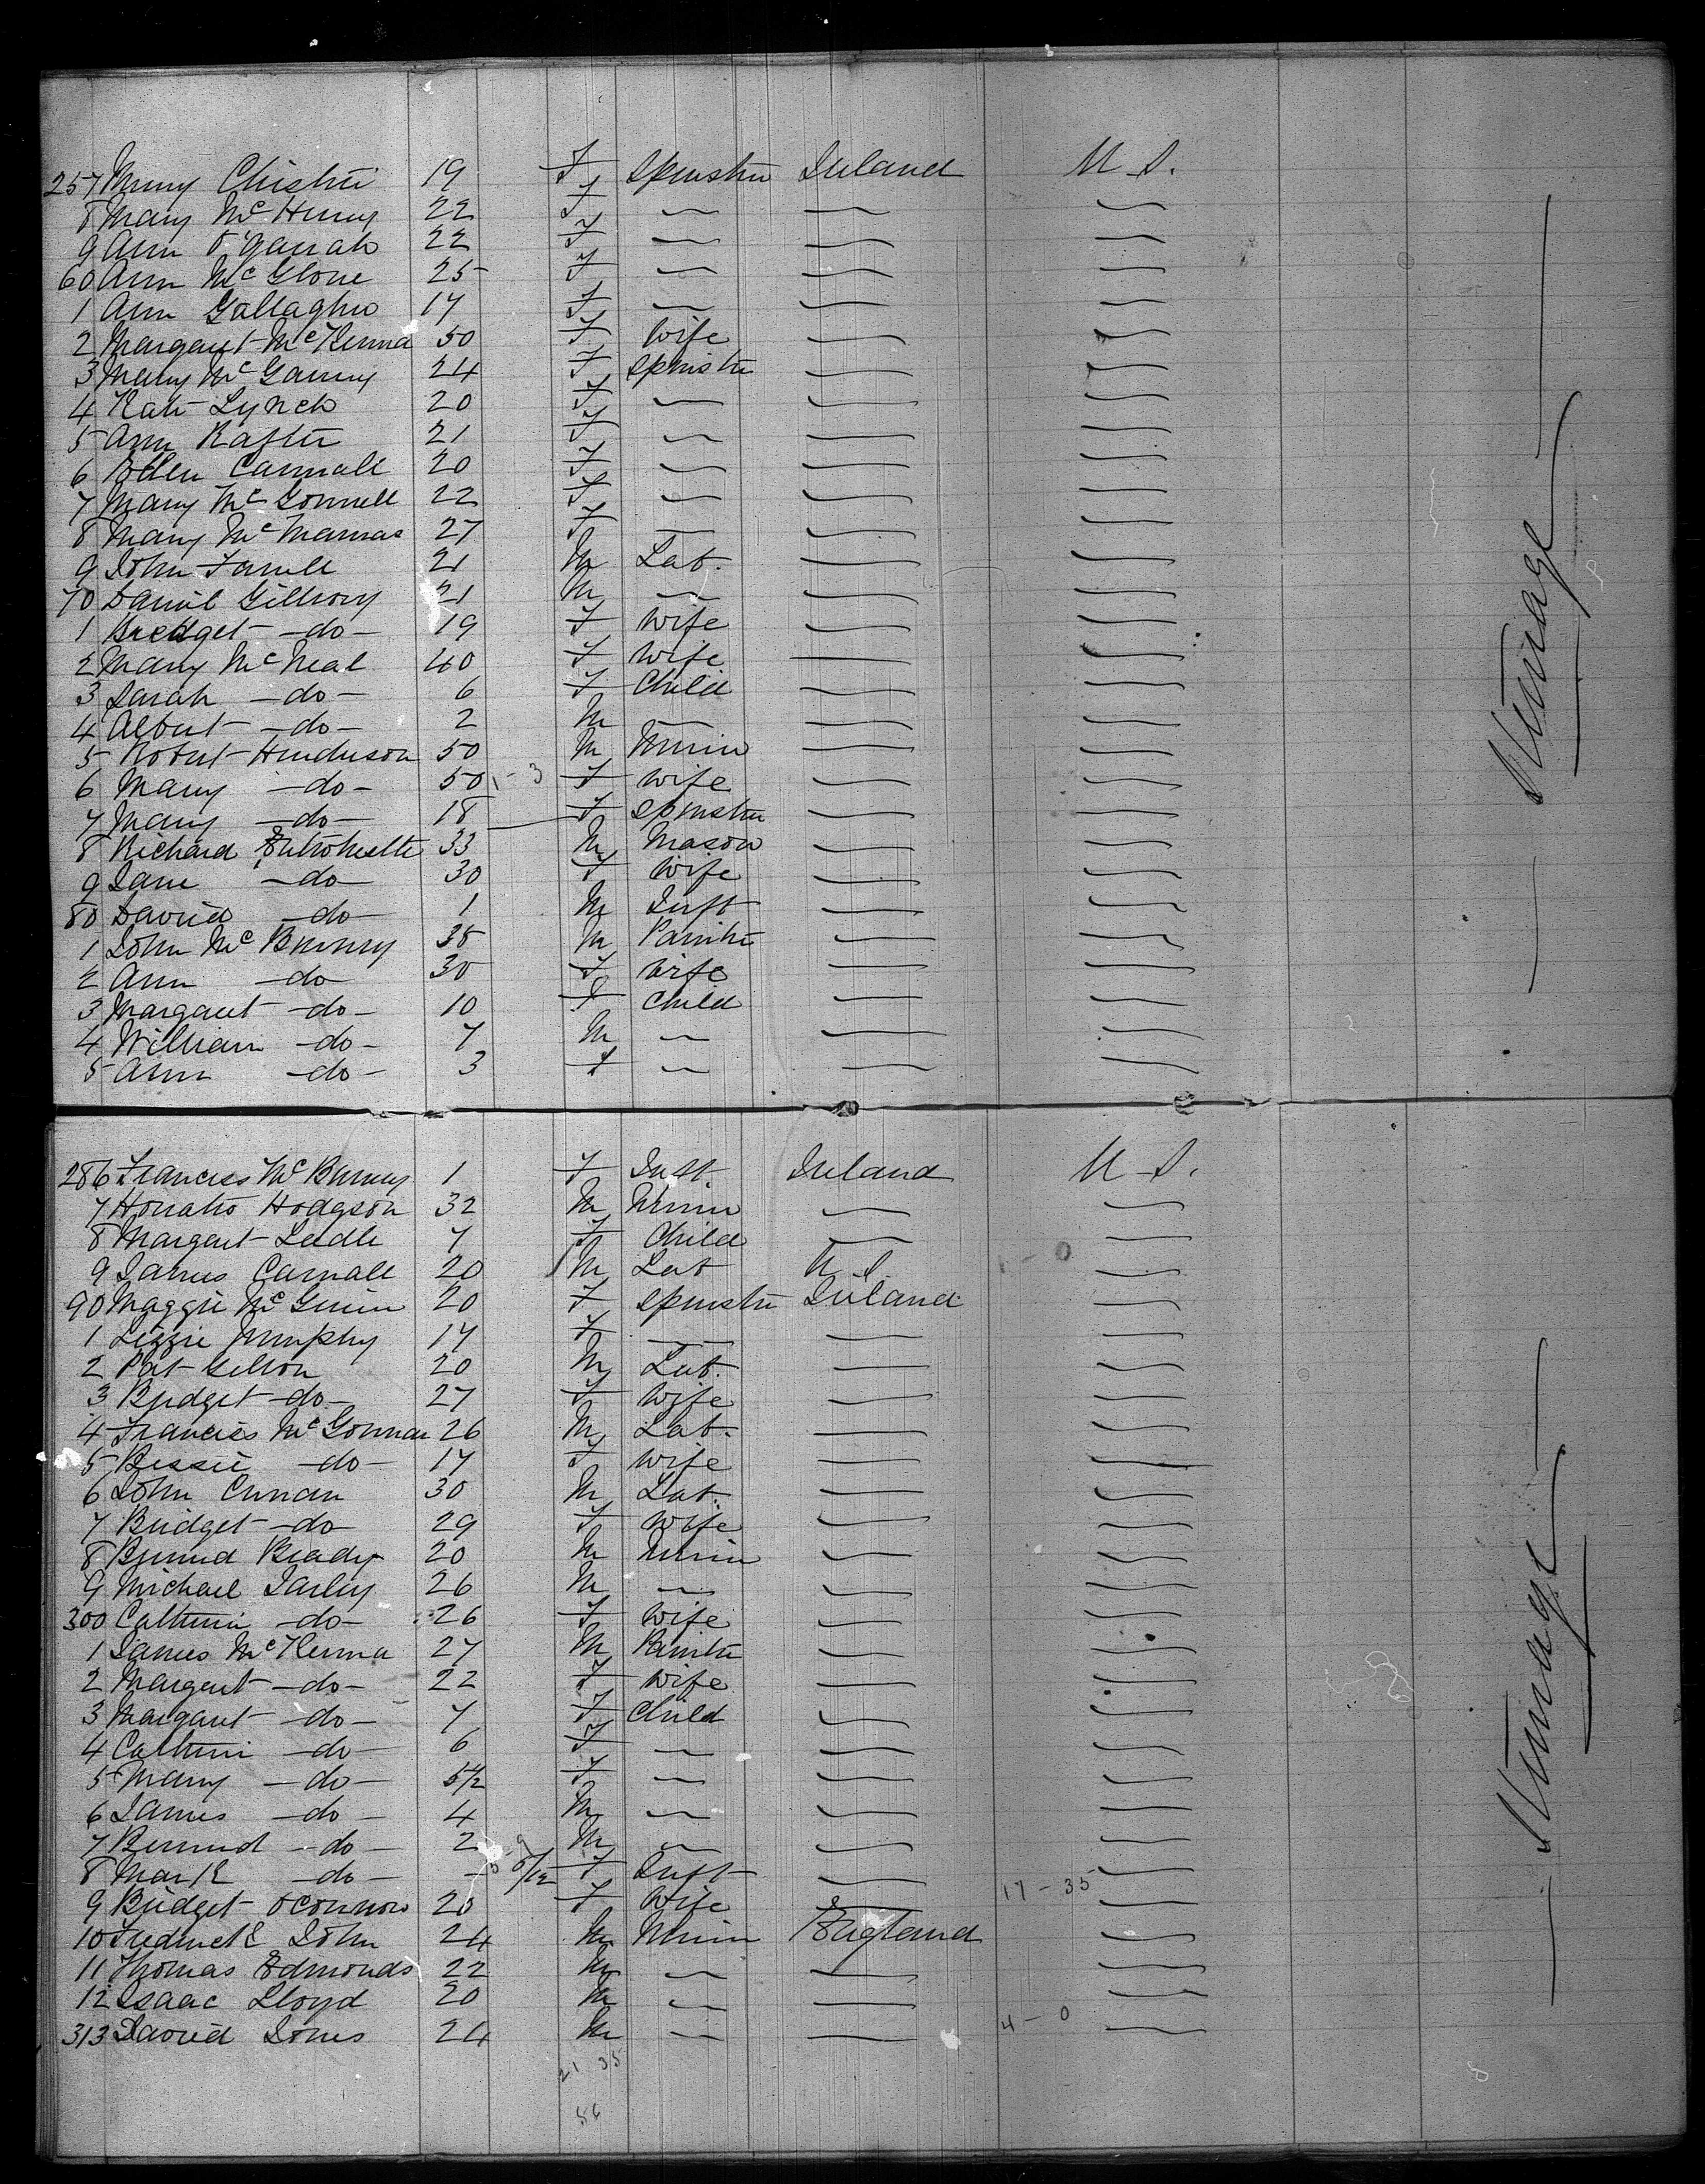 257 Mary Christie 19 F Spinster Ireland U.S.
8 Mary McHenry 22 F — — —
9 Ann O'Garrah 22 F — — —
60 Ann McGlone 25 F — — —
1 Ann Gallagher 17 F — — —
2 Margaret McKenna 50 F Wife — —
3 Mary McGarvey 24 F Spinster — —
4 Kate Lynch 20 F — — —
5 Ann Rafter 21 F — — —
6 Ellen Carroll 20 F — — —
7 Mary McGonnell 22 F — — —
8 Mary McManus 27 F — — —
9 John Farrell 21 M Lab. — —
70 Daniel Gilhooly 21 M — — —
1 Bridget —do— 19 F Wife — —
2 Mary McNeal 40 F Wife — —
3 Sarah —do— 6 F Child — —
4 Albert —do— 2 M — — —
5 Robert Henderson 50 M Miner — —
6 Mary —do— 50 1-3 F Wife — —
7 Mary —do— 18 F Spinster — —
8 Richard 33 M Mason — —
9 Jane —do— 30 F Wife — —
80 David —do— 1 M Inft — —
1 John McBurney 35 M Painter — —
2 Ann —do— 30 F Wife — —
3 Margaret —do— 10 F Child — —
4 William —do— 7 M — — —
5 Ann —do— 3 F — — —
— Steerage —
286 Francess McBurney 1 F Inft. Ireland U.S.
7 Horatio Hodgson 32 M Miner — —
8 Margaret 7 F Child — - 0 —
9 James Carroll 20 M Lab U.S. —
90 Maggie McGuire 20 F Spinster Ireland —
1 Lizzie Murphy 17 F — — —
2 Pat Gilson 20 M Lab. — —
3 Bridget —do— 27 F Wife — —
4 Francies McGorman 26 M Lab. — —
5 Bessie —do— 17 F Wife — —
6 John Curran 30 M Lab. — —
7 Bridget —do— 29 F Wife — —
8 Bernard Brady 20 M Miner — —
9 Michael Farley 26 M — — —
300 Catherine —do— 26 F Wife — —
1 James McKenna 27 M Painter — —
2 Margaret —do— 22 F Wife — —
3 Margaret —do— 7 F Child — —
4 Catherine —do— 6 F — — —
5 Mary —do— 5½ F — — —
6 James —do— 4 M — — —
7 Bernard —do— 2 M — — —
8 Mark —do— - 8/12 F Inft — —
9 Bridget O'Connor 20 F Wife — 17 - 35 —
10 Frederick John 24 M Miner England —
11 Thomas Edmonds 22 M — — —
12 Isaac Lloyd 20 M — — —
313 David Jones 24 M — — 4 - 0 —
21 35
56
— Steerage —